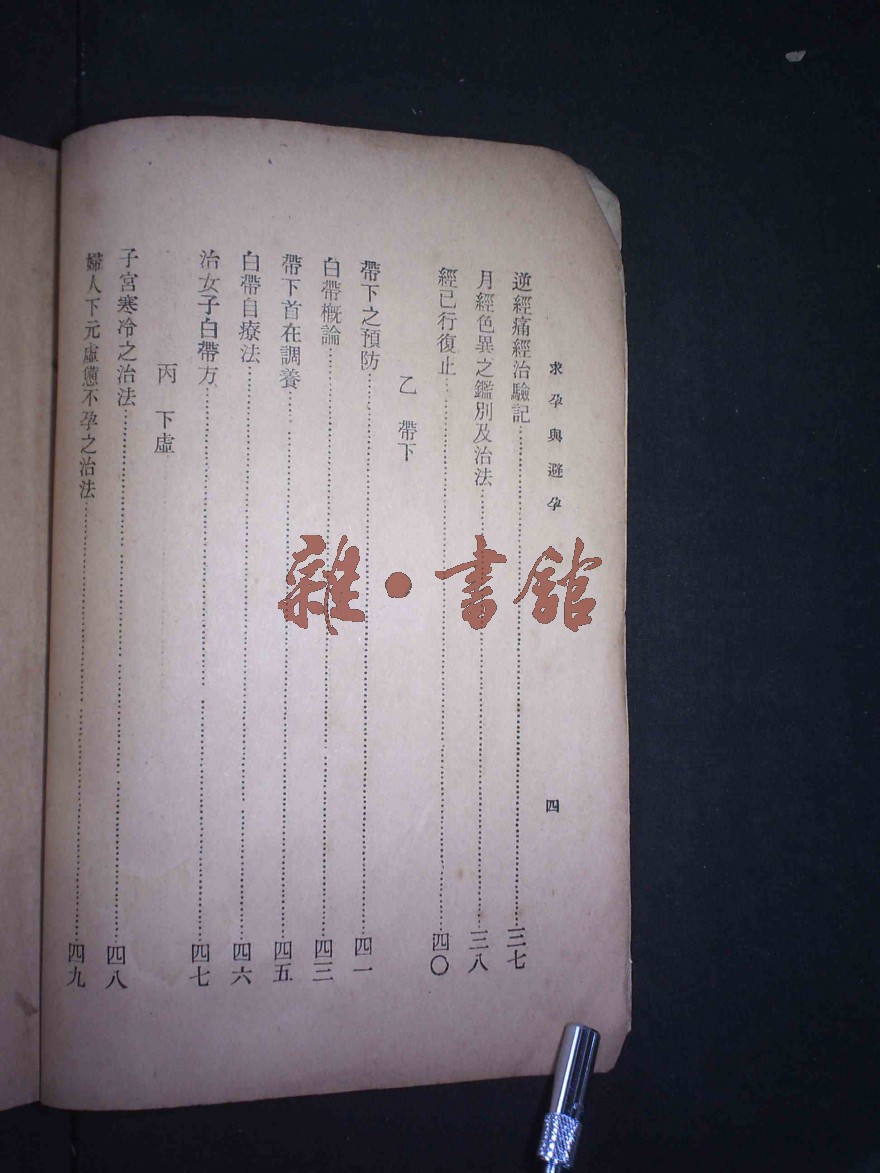 求孕與避孕
四
逆經痛經治驗記……三七
月經色異之鑑別及治法……三八
經已行復止……四〇
乙 帶下
帶下之預防……四一
白帶概論……四三
帶下首在調養……四五
白帶自療法……四六
治女子白帶方……四七
丙 下虛
子宮寒冷之治法……四八
婦人下元虛憊不孕之治法……四九
雜·書館